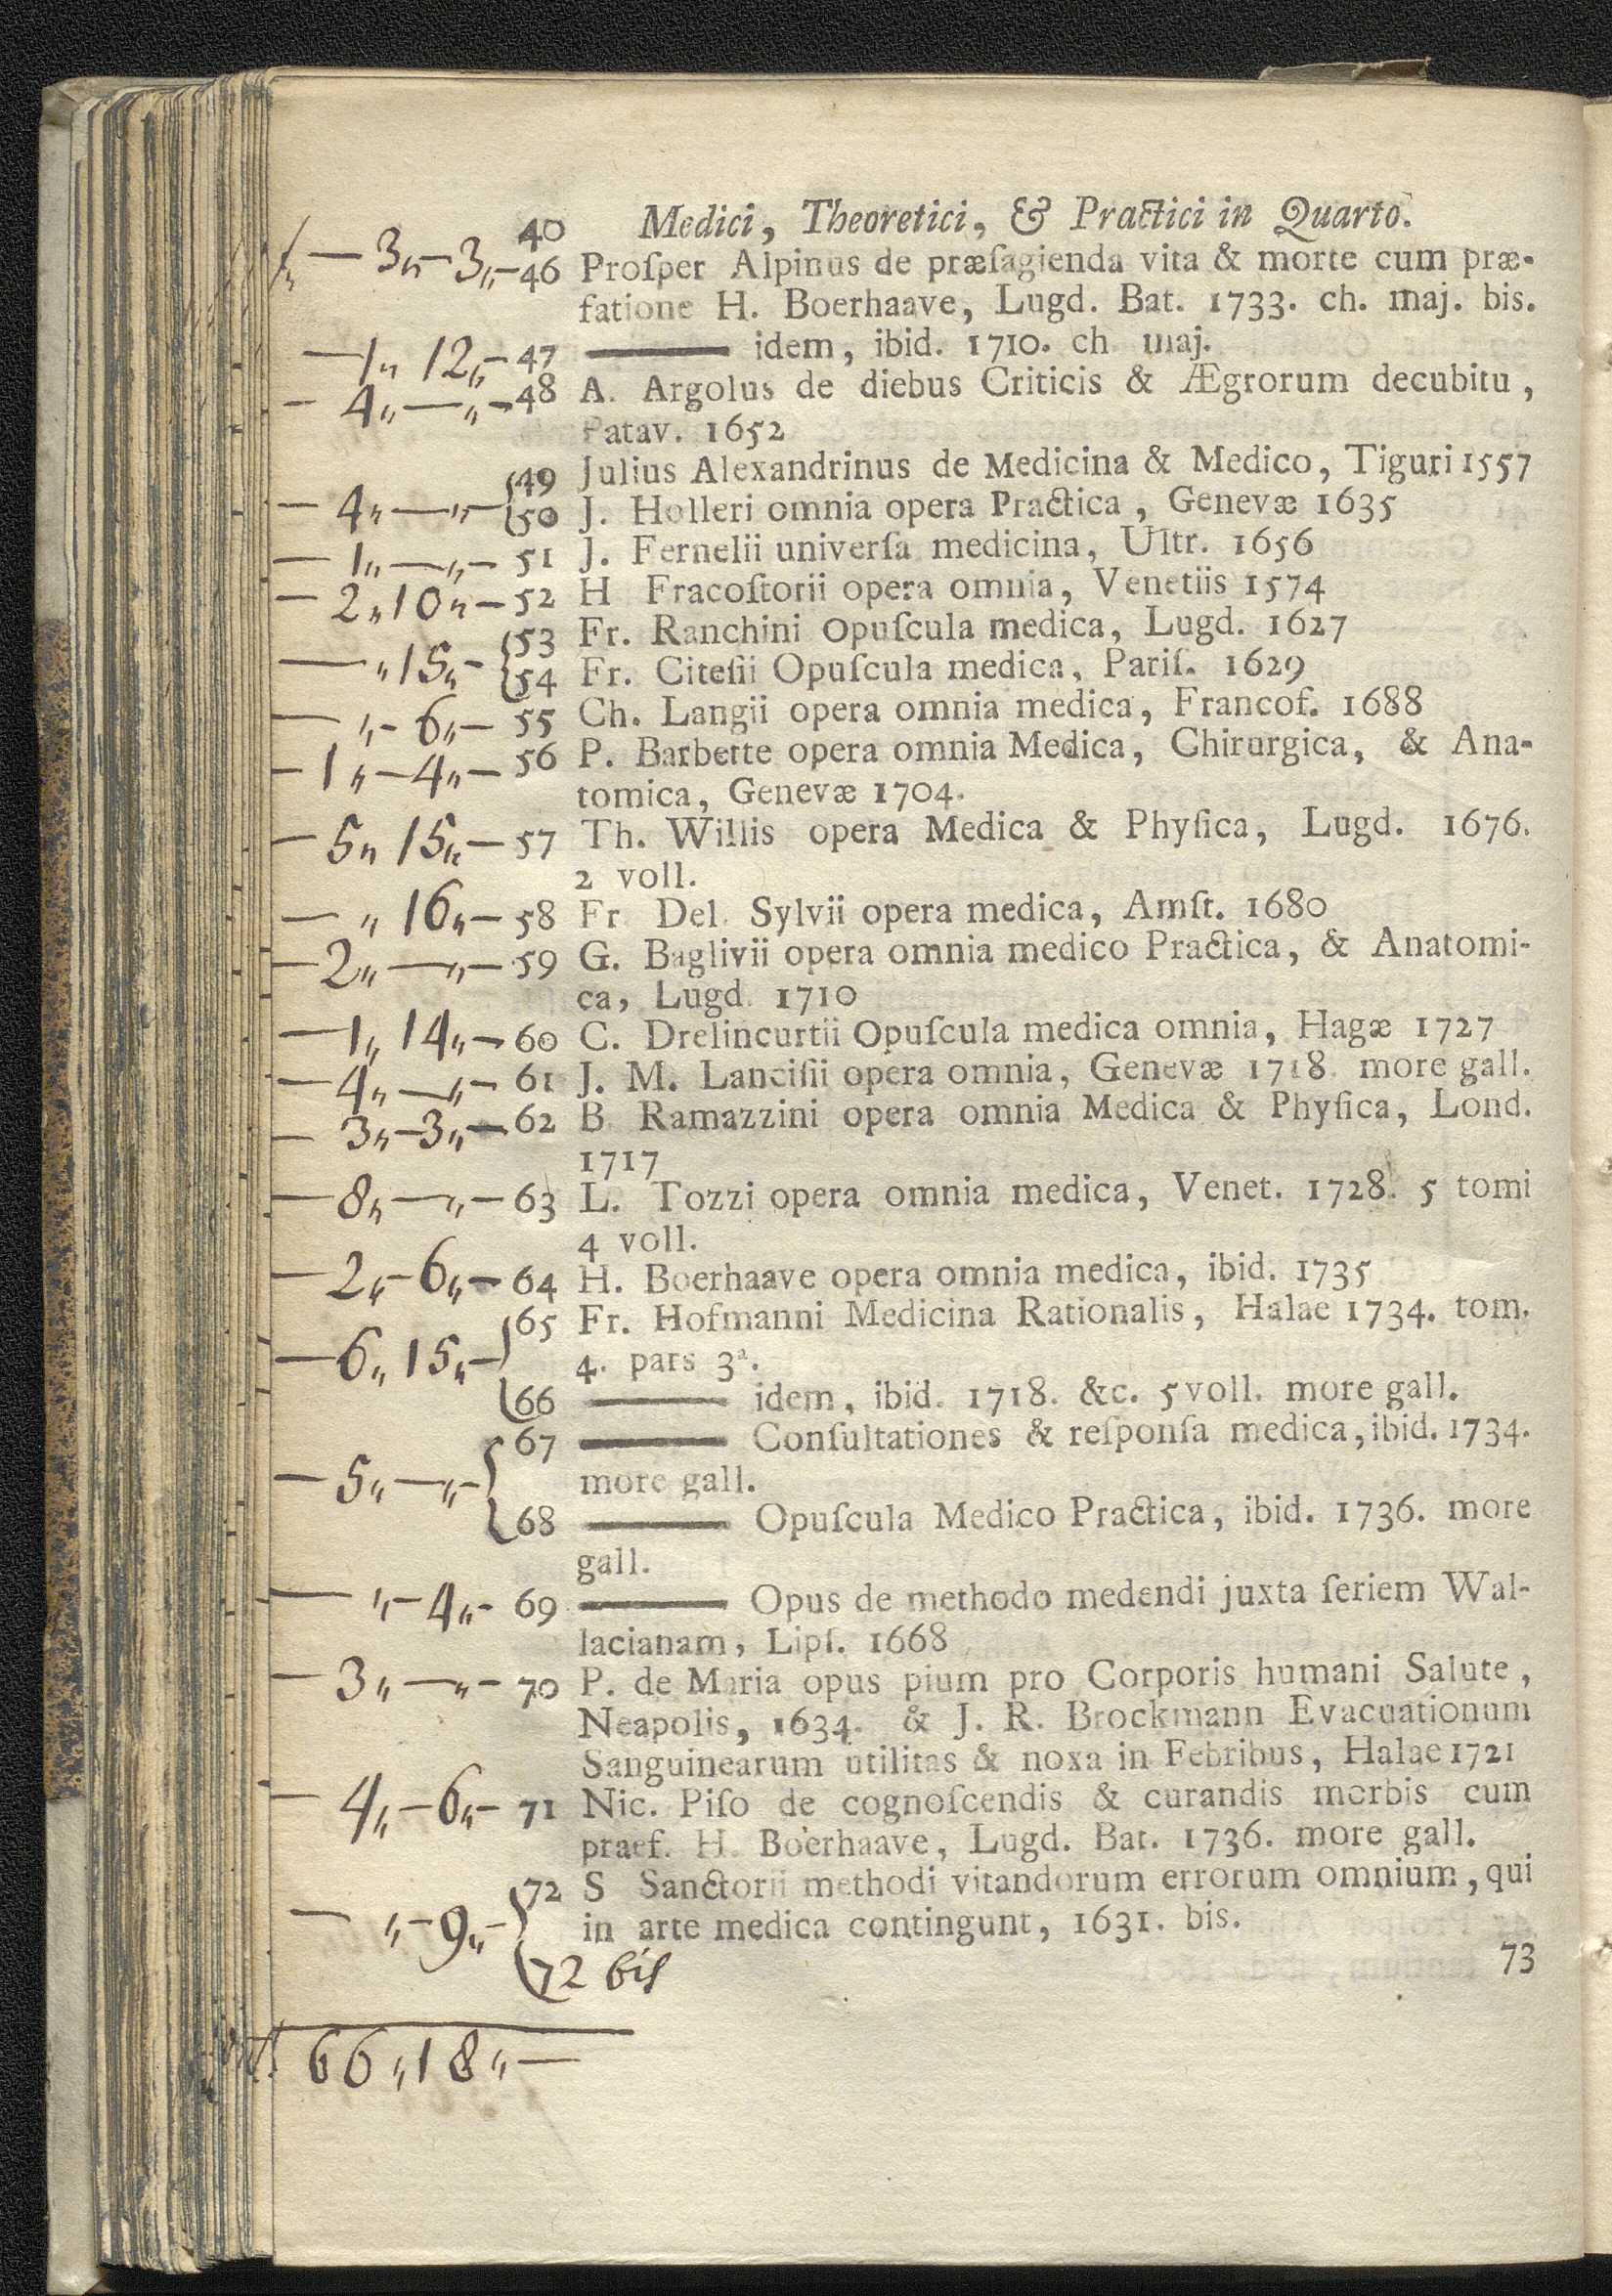 40 Medici, Theoretici, & Practici in Quarto.
— 3„-3„- 46 Proſper Alpinus de præſagienda vita & morte cum præ-
fatione H. Boerhaave, Lugd. Bat. 1733. ch. maj. bis.
— 1„ 12„- 47 ——— idem, ibid. 1710. ch maj.
- 4„—„- 48 A. Argolus de diebus Criticis & Ægrorum decubitu,
Patav. 1652
{49 Julius Alexandrinus de Medicina & Medico, Tiguri 1557
- 4„—„- {50 J. Holleri omnia opera Practica, Genevæ 1635
— 1„—„- 51 J. Fernelii univerſa medicina, Ultr. 1656
- 2„10„- 52 H Fracoſtorii opera omnia, Venetiis 1574
{53 Fr. Ranchini Opuſcula medica, Lugd. 1627
— „15„- {54 Fr. Citeſii Opuſcula medica, Pariſ. 1629
— „- 6„- 55 Ch. Langii opera omnia medica, Francof. 1688
- 1„-4„- 56 P. Barbette opera omnia Medica, Chirurgica, & Ana-
tomica, Genevæ 1704.
- 5„ 15„- 57 Th. Willis opera Medica & Phyſica, Lugd. 1676.
2 voll.
— „ 16„- 58 Fr Del. Sylvii opera medica, Amſt. 1680
- 2„—„- 59 G. Baglivii opera omnia medico Practica, & Anatomi-
ca, Lugd. 1710
— 1„ 14„- 60 C. Drelincurtii Opuſcula medica omnia, Hagæ 1727
- 4„—„- 61 J. M. Lanciſii opera omnia, Genevæ 1718. more gall.
- 3„-3„- 62 B Ramazzini opera omnia Medica & Phyſica, Lond.
1717
— 8„—„- 63 L. Tozzi opera omnia medica, Venet. 1728. 5 tomi
4 voll.
— 2„-6„- 64 H. Boerhaave opera omnia medica, ibid. 1735
{65 Fr. Hofmanni Medicina Rationalis, Halae 1734. tom.
— 6„ 15„- 4. pars 3ª.
{66 ——— idem, ibid. 1718. &c. 5 voll. more gall.
{67 ——— Conſultationes & reſponſa medica, ibid. 1734.
- 5„—„- more gall.
{68 ——— Opuſcula Medico Practica, ibid. 1736. more
gall.
— „-4„- 69 ——— Opus de methodo medendi juxta ſeriem Wal-
lacianam, Lipſ. 1668
- 3„—„- 70 P. de Maria opus pium pro Corporis humani Salute,
Neapolis, 1634. & J. R. Brockmann Evacuationum
Sanguinearum utilitas & noxa in Febribus, Halae 1721
- 4„-6„- 71 Nic. Piſo de cognoſcendis & curandis morbis cum
praef. H. Boerhaave, Lugd. Bat. 1736. more gall.
{72 S Sanctorii methodi vitandorum errorum omnium, qui
— „-9„- in arte medica contingunt, 1631. bis.
{72 bis
73
66„18„—